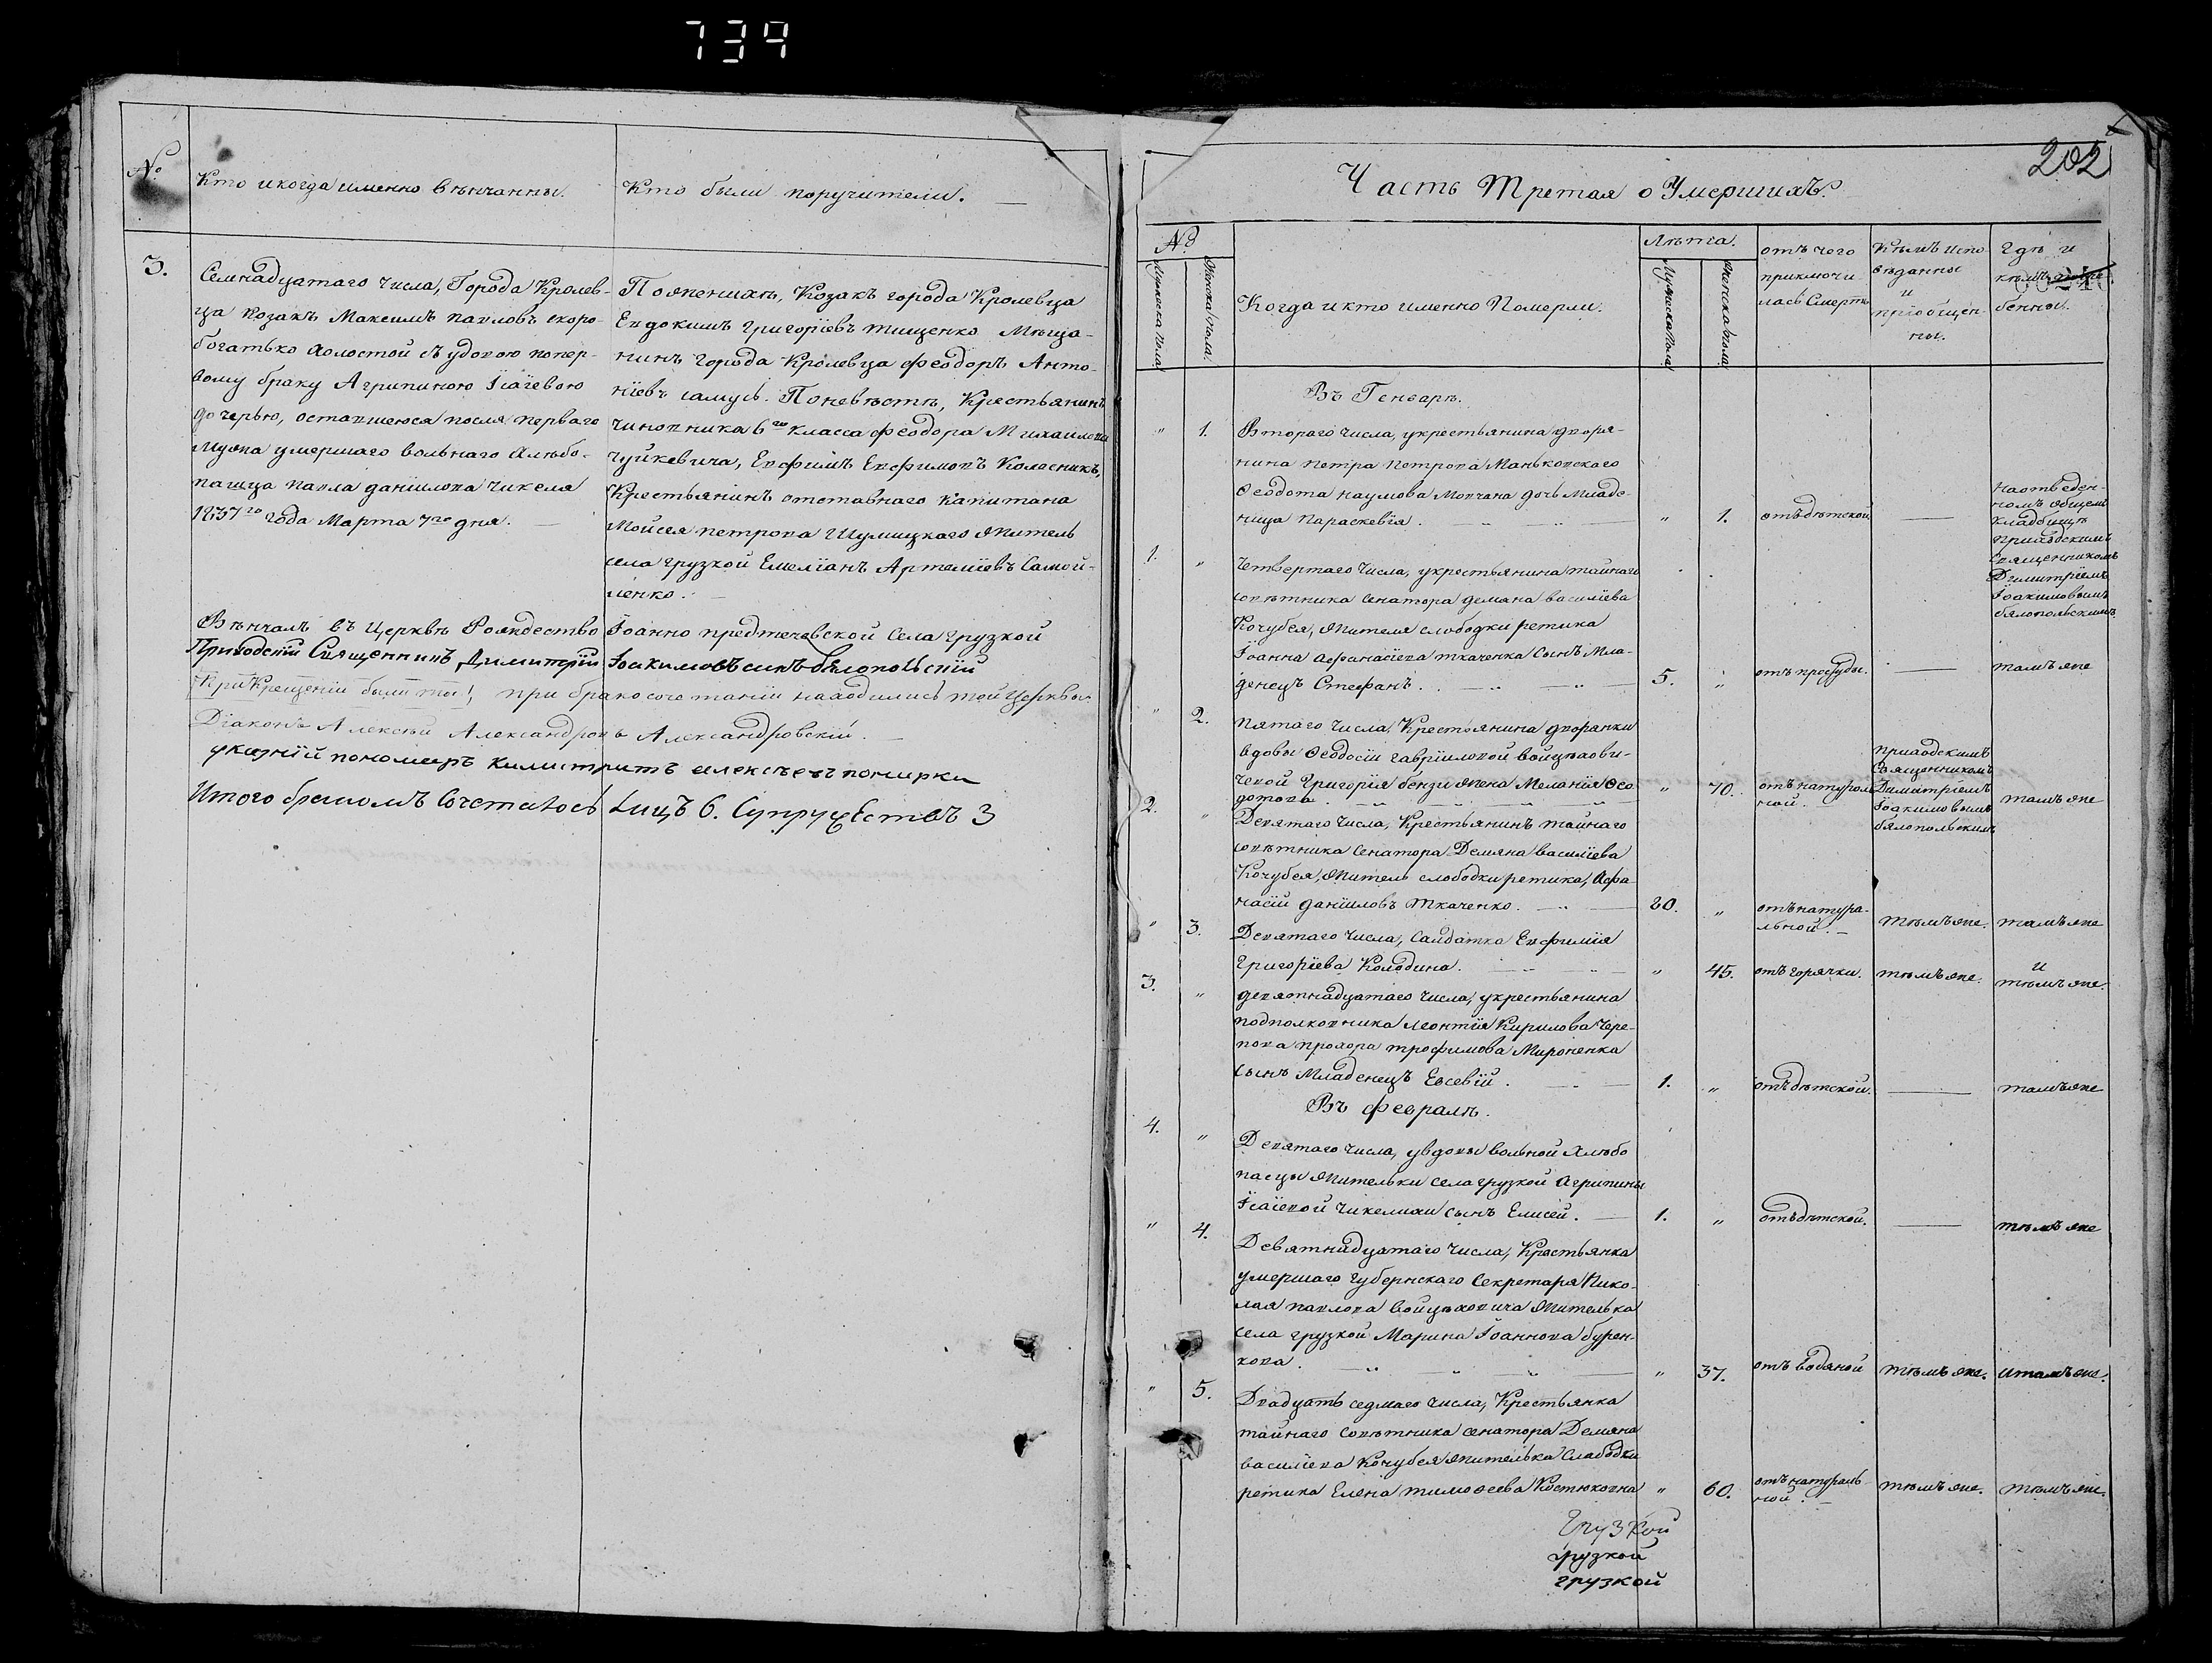 739
№
Кто икогда именно вѣнчанны.
Кто были поручители.
3.
Семнадцатаго Числа, Города Кролев-
ца Козакъ Максимъ павловъ скоро-
богатько холостой съ удовою попер-
вому браку Агрипиною Ісаіевою
дочерью, оставшеюся после перваго
мужа умершаго вольнаго Хлѣбо-
пашца павла даніилова чикеля
1837го года Марта 7го дня.
Поженихѣ, Козакъ города Кролевца
Евдокимъ Григоріевъ тищенко Мѣща-
нинъ города Кролевца Феодоръ Анто-
ніевъ самусь. Поневѣстѣ, Крестьянинъ
чиновника 6го класса Феодора Михайлова
чуйкевича, Евфимъ Евфимовъ Колесникъ,
Крестьянинъ отставнаго Капитана
Мойсея петрова Шумицкаго житель
села грузкой Емеліанъ Артеміевъ Самой-
ленко.
Вѣнчалъ въ Церквѣ Рождество Іоанно предтечевской Села Грузкой
Приходскій Священникъ Димитрій Іоакимовъ сынъ бялопольскій
при бракосочетаніи находились той Церквы
Діаконъ Алексѣй Александровъ Александровскій.
указній пономаръ
Итого бракомъ Сочеталось Лицъ 6. Супружествъ 3
202
Часть Третая о Умершихъ.
№
Мужеска пола
Женска пола.
Когда икто именно Померли.
Лѣта.
Мужеска пола
Женска пола
отъ чего
приключи
лась Смерть
Кѣмъ испо
вѣданны
и
пріобщен-
ны.
Гдѣ и
кѣмъ погре
бенны.
Въ Генварѣ.
" 1. Втораго Числа, укрестьянина дворя-
нина петра петрова Маньковскаго
Ѳеодота наумова Мовчана дочь Младе-
ница параскевія. " 1. отъ дѣтской
Наотведен-
номъ общемъ
кладбищѣ
приходскимъ
Священникомъ
Димитріемъ
Іоакимовымъ
бялопольскимъ
1. " Четвертаго Числа, укрестьянина тайнаго
совѣтника Сенатора демяна василіева
Кочубея, жителя слободки ретика
Іоанна Афанасіева ткаченка Сынъ Мла-
денецъ Стефанъ. 5. " отъ простуды. тамъ же
" 2. пятаго Числа, Крестьянина дворянки
вдовы Ѳеодосіи гавріиловой войцѣхови-
чевой Григорія бенди жена Меланія Ѳео
дотова. " 70. отъ натураль
ной.
приходскимъ
Священникомъ
Димитріемъ
Іоакимовымъ
бялопольскимъ
тамъ же
2. " Девятаго Числа, Крестьянинъ тайнаго
совѣтника Сенатора Демяна василіева
Кочубея, житель слободки ретика, Афа-
насій даніиловъ Ткаченко. 20. " отъ натура-
льной. тѣмъ же. тамъ же
" 3. Девятаго Числа, Салдатка Евфимія
Григоріева Колодина. " 45. отъ горячки. тѣмъ же. и
тѣмъ же.
3. " девятнадцатаго Числа, укрестьянина
подполковника леонтія Кирилова Чере-
пова прохора трофимова Мироненка
сынъ Младенецъ Евсевій. 1. " отъ дѣтской. тамъ же
Въ Февралѣ.
4. " Девятаго Числа, увдовы вольной Хлѣбо
пасцы жительки села грузкой Агрипины
Ісаіевой Чикелихи сынъ Елисей. 1. " отъ дѣтской. тѣмъ же
" 4. Девятнадцатаго Числа, Крестьянка
умершаго Губернскаго Секретаря Нико-
лая павлова войцѣховича жителька
села грузкой Марина Іоаннова бурен-
кова. " 37. отъ водяной тѣмъ же. итамъ же.
" 5. Двадцать седмаго Числа, Крестьянка
тайнаго Совѣтника сенатора Демяна
василіева Кочубея жителька Слабодки
ретика Елена тимоѳеева Костюковна " 60. отъ натураль
ной. тѣмъ же. тѣмъ же.
Грузкой
грузкой
грузкой